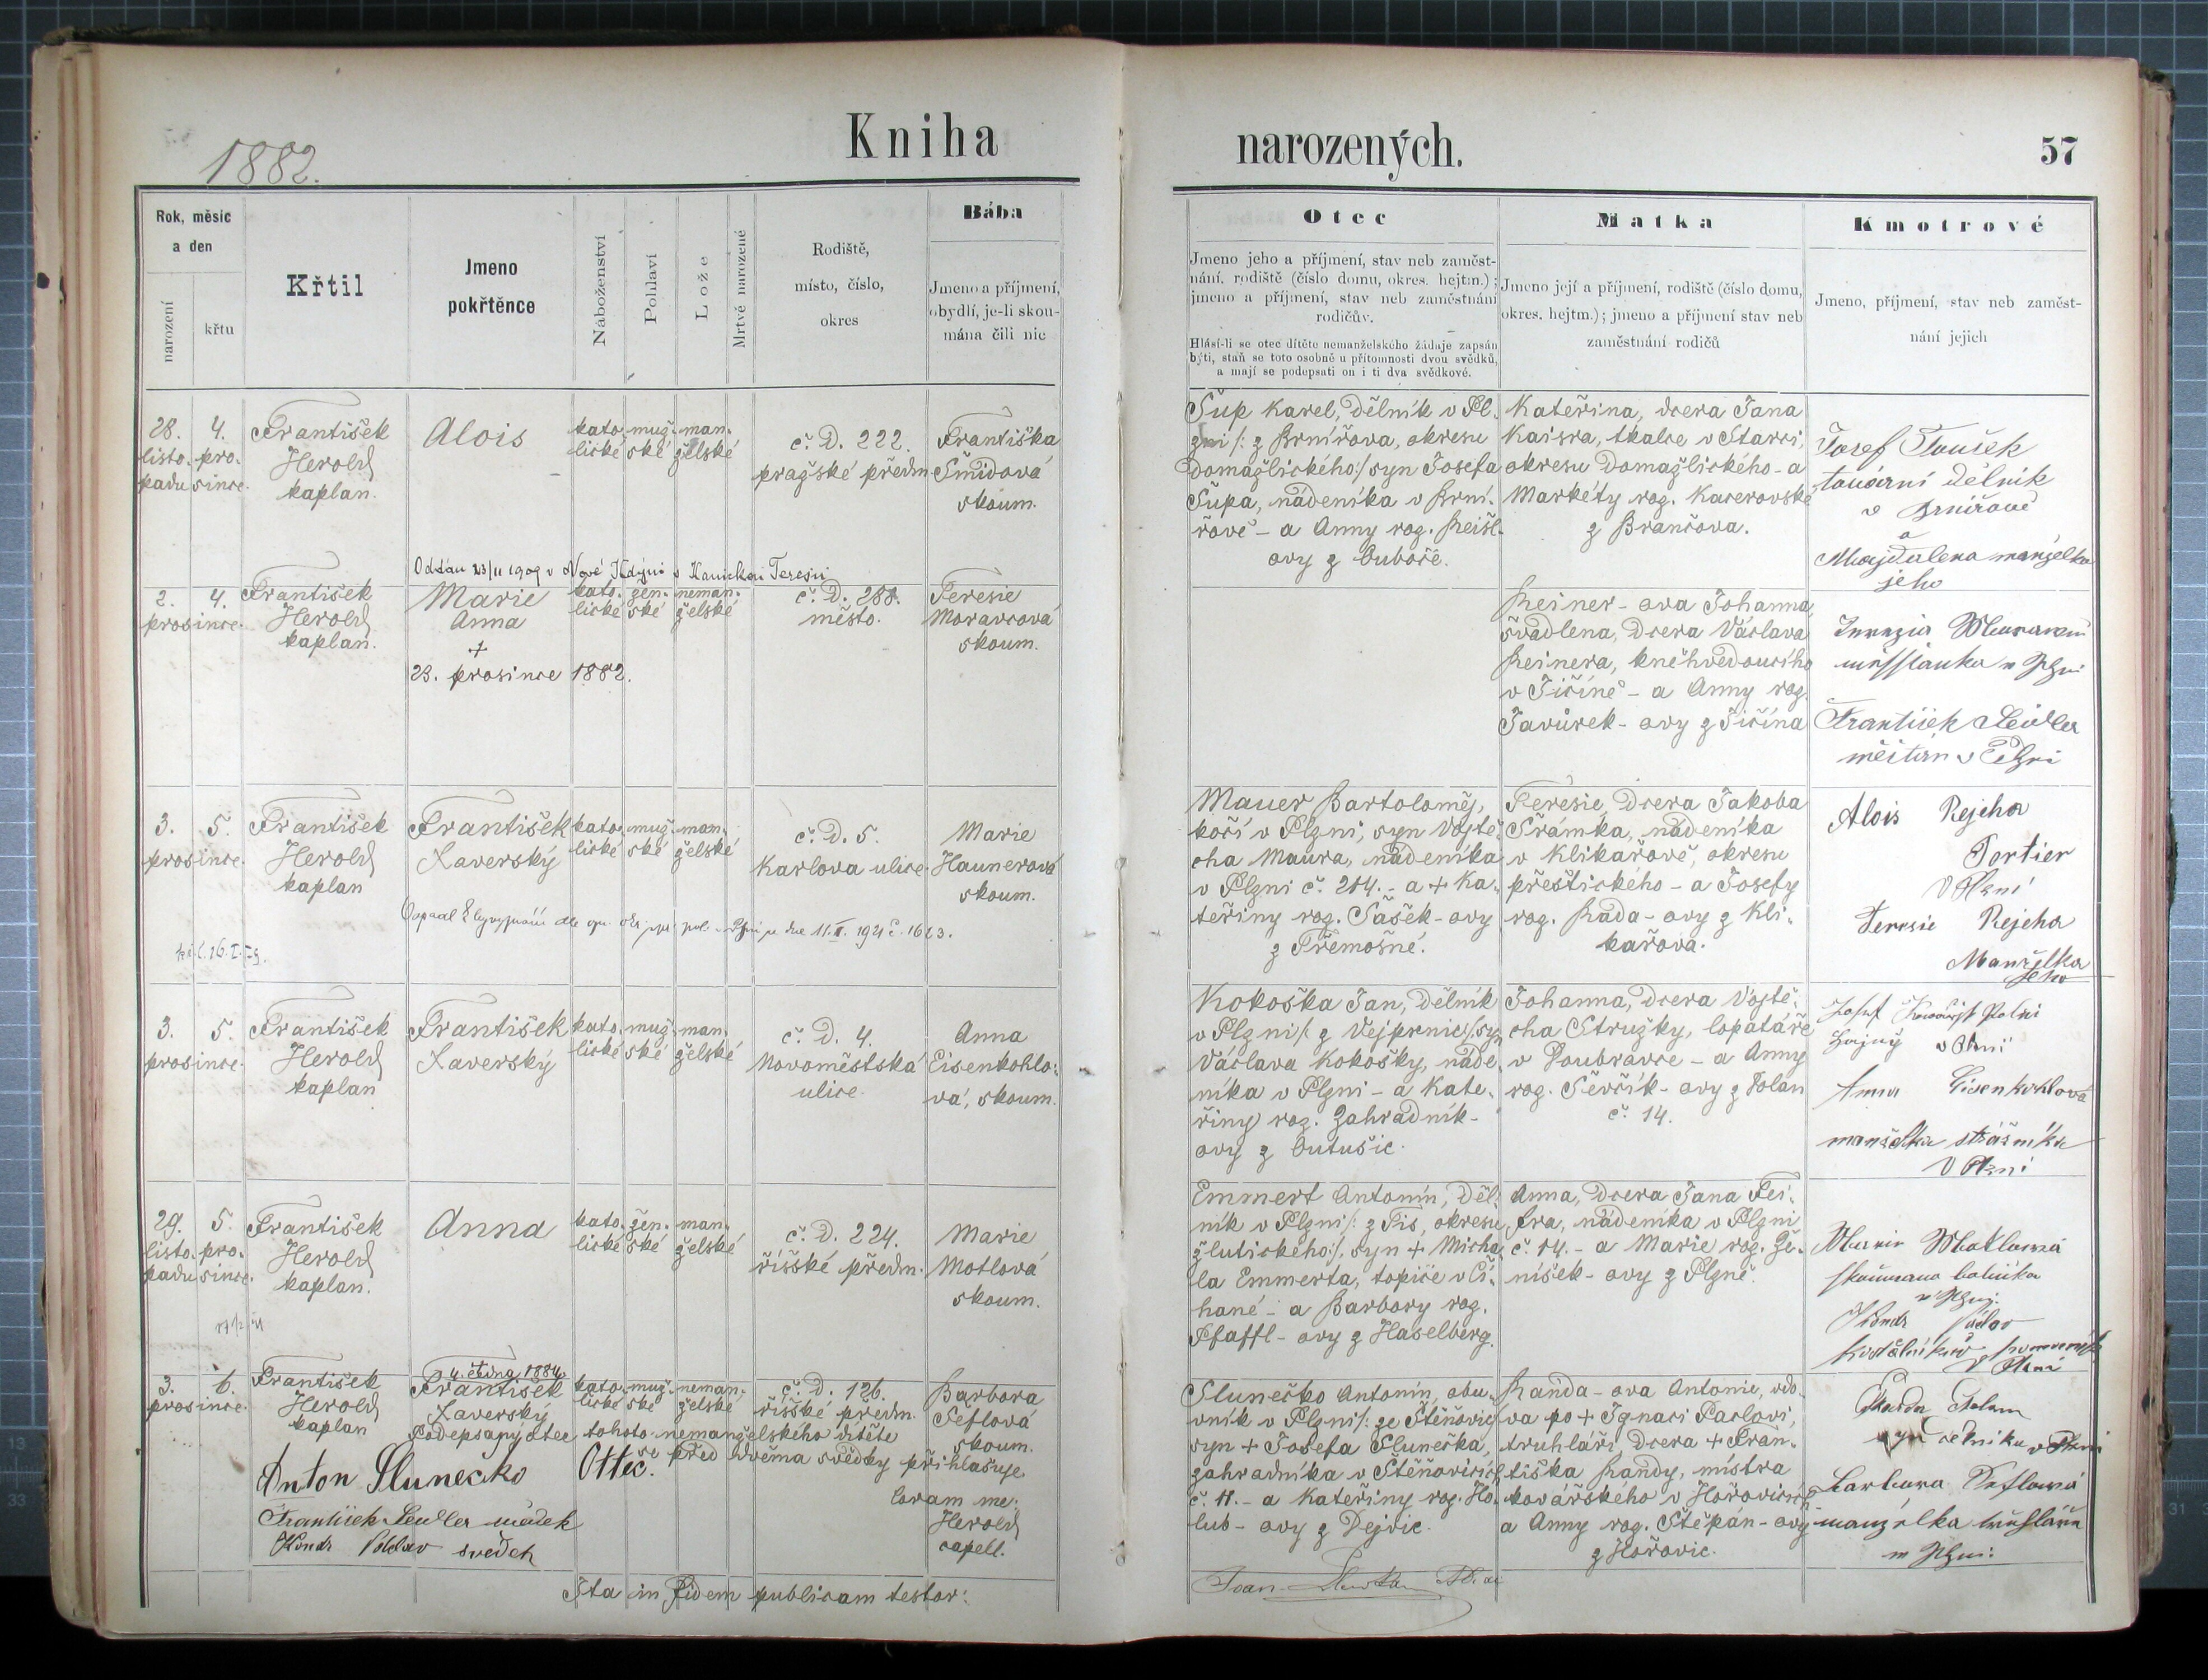 1882.
Kniha
narozených.
57
Rok, měsíc
a den
narození
křtu
Křtil
Jmeno
pokřtěnce
Náboženství
Pohlaví
Lože
Mrtvě narozené
Rodiště,
místo, číslo,
okres
Bába
Jmeno a příjmení,
obydlí, je-li skou-
mána čili nic
Otec
Jmeno jeho a příjmení, stav neb zaměst-
nání, rodiště (číslo domu, okres. hejtm.);
jmeno a příjmení, stav neb zaměstnání
rodičův.
Hlásí-li se otec dítěte nemanželského žádaje zapsán
býti, staň se toto osobně u přítomnosti dvou svědků,
a mají se podepsati on i ti dva svědkové.
Matka
Jmeno její a příjmení, rodiště (číslo domu,
okres. hejtm.); jmeno a příjmení stav neb
zaměstnání rodičů
Kmotrové
Jmeno, příjmení, stav neb zaměst-
nání jejich
28.
listo-
padu
4.
pro-
since.
František
Herold
kaplan.
Alois
kato-
lické
muž-
ské
man-
želské
č. D. 222.
pražské předm.
Františka
Šmidová
skoum.
Šup Karel, dělník v Pl-
zni /: z Brnířova, okresu
domažlického :/ syn Josefa
Šupa, nádeníka v Brní-
řově - a Anny roz. Reisl-
ovy z Ouboče.
Kateřina, dcera Jana
Kaisra, tkalce v Starci,
okresu Domažlického - a
Markéty roz. Kacerovské
z Brančova.
Josef Toušek
továrni dělník
v Brniřově
a
Magdalena manželka
jeho
Oddán 23/11 1909 v Nové Kdýni s Teresií
2.
4.
prosince.
František
Herold
kaplan.
Marie
Anna
+
23. prosince 1882.
kato-
lické
žen-
ské
neman-
želské
č. D. 288.
město.
Teresie
Moravcová
skoum.
Reiner-ova Johanna,
švadlena, dcera Václava
Reinera, kněhvedoucího
v Jičíně - a Anny roz.
Javůrek-ovy z Jičína
František Seidler
měšťan v Plzni
3.
5.
prosince.
František
Herold
kaplan
František
Xaverský
kato-
lické
muž-
ské
man-
želské
č. D. 5.
Karlova ulice.
Marie
Haunerová
skoum.
Mauer Bartoloměj,
kočí v Plzni, syn Vojtě-
cha Maura, nádeníka
v Plzni č. 214. - a + Ka-
teřiny roz. Sášek-ovy
z Třemošné.
Teresie, dcera Jakoba
Šrámka, nádeníka
v Klikařově, okresu
přeštického - a Josefy
roz. Rada-ovy z Kli-
kařova.
Alois Rejcha
Portier
V Plzni
Teresie Rejcha
Manželka
jeho
3.
5.
prosince.
František
Herold
kaplan
František
Xaverský
kato-
lické
muž-
ské
man-
želské
č. D. 4.
Novoměstská
ulice.
Anna
Eisenkohlo-
vá, skoum.
Kokoška Jan, dělník
v Plzni /: z Vejprnic :/ syn
Václava Kokošky, náde-
níka v Plzni - a Kate-
řiny roz. Zahradník-
ovy z Outušic.
Johanna, dcera Vojtě-
cha Stružky, lopatáře
v Doubravce - a Anny
roz. Ševčík-ovy z Dolan
č. 14.
Josef Polní
Hajný v Plzni
Anna Eisenkohlová
manželka strážníka
V Plzni
29.
listo-
padu
5.
pro-
since.
František
Herold
kaplan.
Anna
kato-
lické
žen-
ské
man-
želské
č. D. 224.
říšské předm.
Marie
Motlová
skoum.
Emmert Antonín, děl-
ník v Plzni /: z Tis, okresu
žlutického :/, syn + Micha-
la Emmerta, topiče v Ci-
hané - a Barbory roz.
Pfaffl-ovy z Haselberg.
Anna, dcera Jana Fei-
fra, nádeníka v Plzni
č. 14. - a Marie roz. Že-
níšek-ovy z Plzně.
Marie Motlová
v Plzni.
V Plzni
3.
6.
prosince.
František
Herold
kaplan
4. června 1884
František
Xaverský
kato-
lické
muž-
ské
neman-
želské
č. D. 126.
říšské předm.
Barbora
Peflová
skoum.
Podepsaný otec tohoto nemanželského dítěte
se před dvěma svědky přihlašuje.
Anton Slunečko Ottec.
František Seidler svědek
svědek
Coram me.
Herold
capell.
Slunečko Antonín, obu-
vník v Plzni /: ze Štěňovic :/
syn + Josefa Slunečka,
zahradníka v Štěňovicích
č. 11. - a Kateřiny roz. Ho-
lub-ovy z Dejvic.
Randa-ova Antonie, vdo-
va po + Ignaci Pavlovi,
truhláři, dcera + Fran-
tiška Randy, mistra
kovářského v Hořovicích
a Anny roz. Štěpán-ovy
z Hořovic.
Barbora Peflová
manželka truhláře
w Plzni.
Ita in fidem publicam testor: